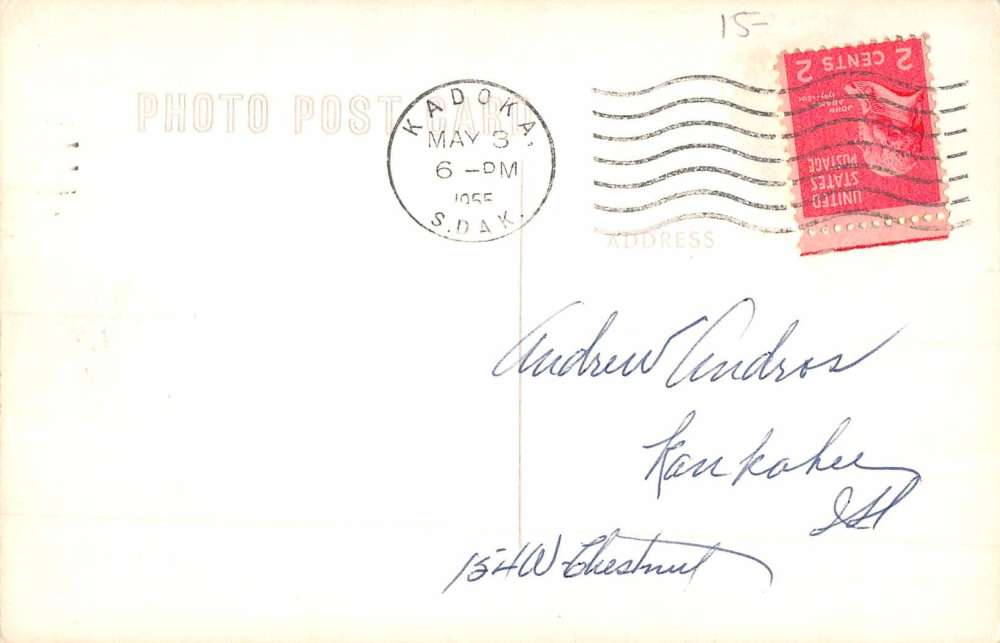 15-
PHOTO POST CARD
KADOKA,
MAY 3
6 -PM
1955
S.DAK.
2 CENTS 2
JOHN
ADAMS
1797-1801
UNITED
STATES
POSTAGE
ADDRESS
Andrew Andros
Kankakee
Ill
154 W Chestnut